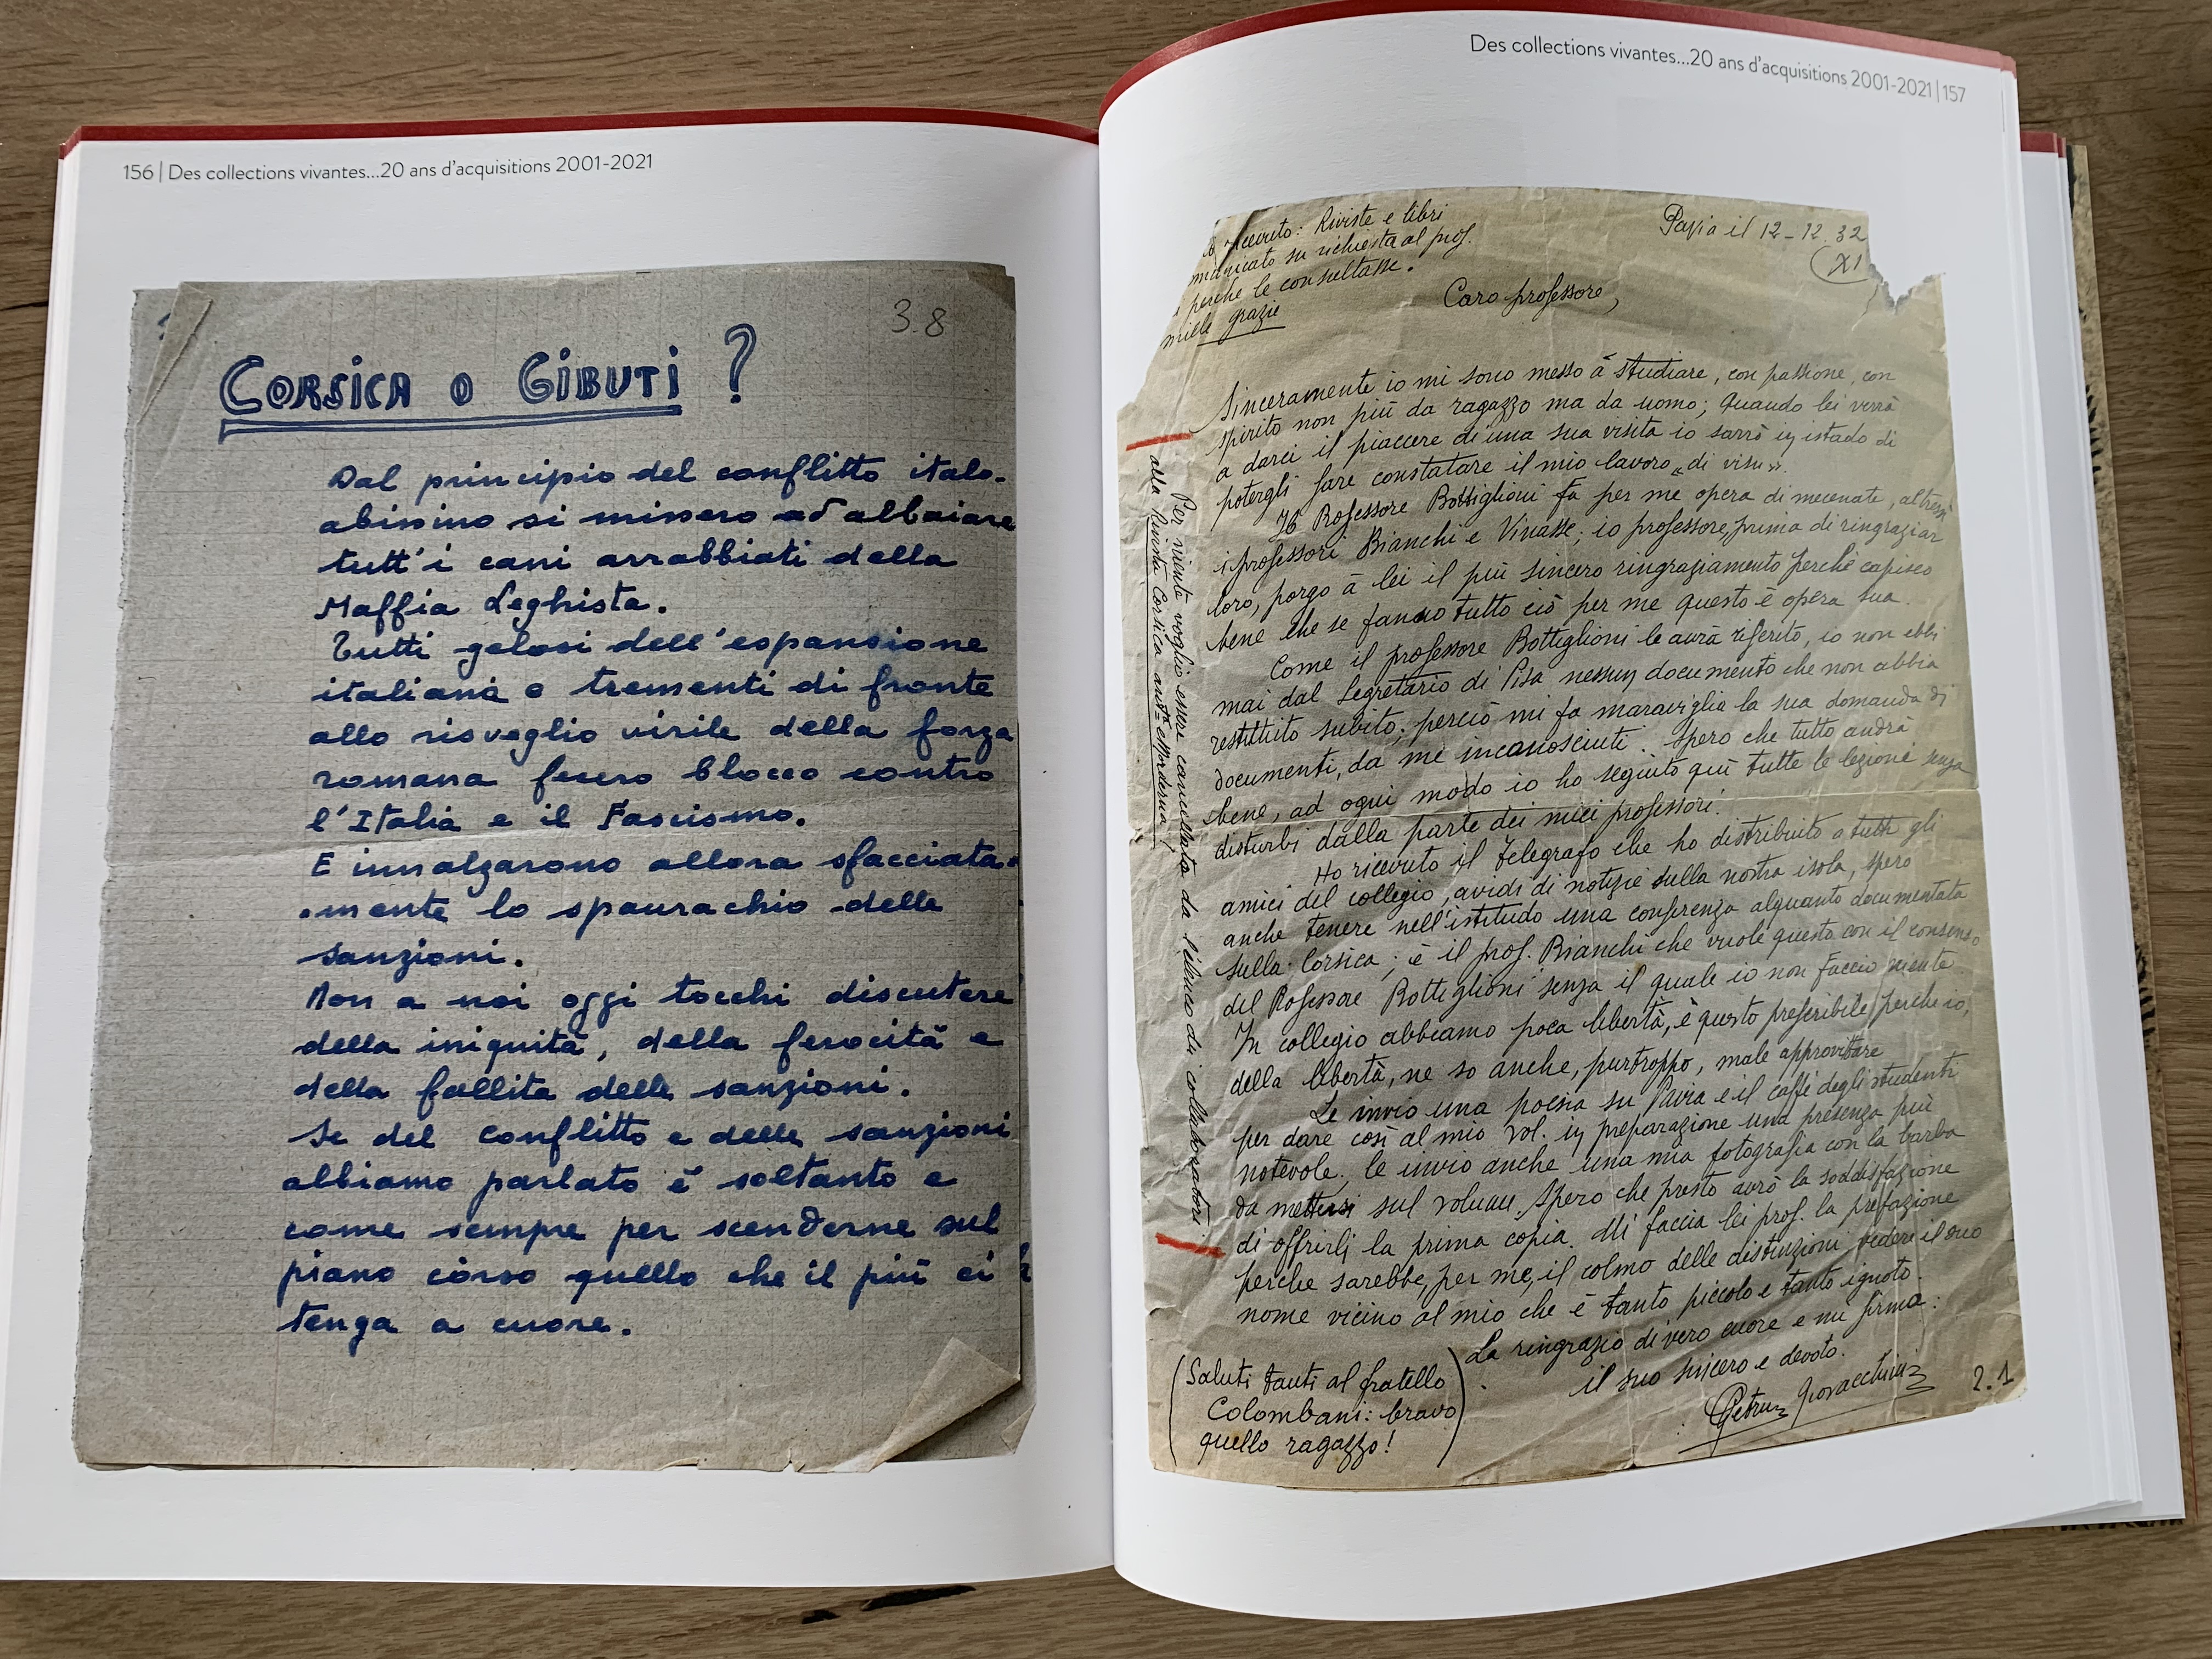 156 | Des collections vivantes...20 ans d'acquisitions 2001-2021
3.8
CORSICA O GIBUTI ?
Dal principio del conflitto italo-
abissino si missero ad abbaiare
tutt'i cani arrabbiati della
Maffia Leghista.
Tutti gelosi dell'espansione
italiana e trementi di fronte
allo risveglio virile della forza
romana fecero blocco contro
l'Italia e il Fascismo.
E innalzarono allora sfacciata-
-mente lo spaurachio delle
sanzioni.
Non a noi oggi tocchi discutere
della iniquità, della ferocità e
della fallita delle sanzioni.
Se del conflitto e delle sanzioni
abbiamo parlato è soltanto e
come sempre per scenderne sul
piano còrso quello che il più ci
tenga a cuore.
Des collections vivantes...20 ans d'acquisitions 2001-2021 | 157
ricevuto: Riviste e libri
su richiesta al prof.
perche le consultasse.
mille grazie
Pavia il 12-12.32
(XI
Caro professore,
Sinceramente io mi sono messo à studiare, con passione, con
spirito non più da ragazzo ma da uomo; quando lei verrà
a darci il piaccere di una sua visita io sarrò in istado di
potergli fare constatare il mio lavoro "di visu".
Il Professore Bottiglioni fa per me opera di mecenate, altresì
i professori Bianchi e Vinasse; io professore, prima di ringraziar
loro, porgo à lei il più sincero ringraziamento perchè capisco
bene che se fanno tutto ciò per me questo è opera sua.
Come il professore Bottiglioni le avrà riferito, io non ebbi
mai dal Segretario di Pisa nessun documento che non abbia
restituito subito; perciò mi fa maraviglia la sua domanda di
documenti, da me inconosciuti. Spero che tutto andrà
bene, ad ogni modo io ho seguito quì tutte le lezioni senza
disturbi dalla parte dei miei professori.
Ho ricevuto il Telegrafo che ho distribuito a tutti gli
amici del collegio, avidi di notizie sulla nostra isola, spero
anche tenere nell'istitudo una conferenza alquanto documentata
sulla Corsica; è il prof. Bianchi che vuole questo con il consenso
del Professore Bottiglioni senza il quale io non faccio niente
In collegio abbiamo poca libertà, è questo preferibile perchè io,
della libertà, ne so anche, purtroppo, male approvitare
Le invio una poesia su Pavia e il caffè degli studenti
per dare così al mio vol. in preparazione una presenza più
notevole, le invio anche una mia fotografia con la barba
da mettersi sul volume. Spero che presto avrò la soddisfazione
di offrirli la prima copia. Mi faccia lei prof. la prefazione
perche sarebbe, per me, il colmo delle distinzioni vedere il suo
nome vicino al mio che è tanto piccolo e tanto ignoto.
La ringrazio di vero cuore e mi firma:
il suo sincero e devoto.
Petru Giovacchini
2.1
(Saluti tanti al fratello
Colombani: bravo
quello ragazzo!)
Per niente voglio essere cancellato da l'elenco dei collaboratori
alla Rivista Corsica antica e moderna